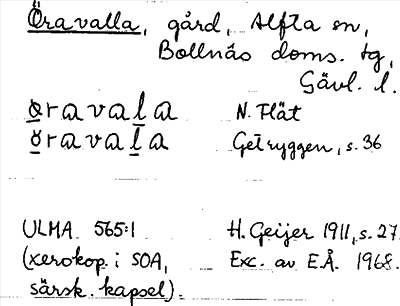 Öravalla, gård, Alfta sn,
Bollnäs doms. tg,
Gävl. l.
øravala N. Flät
öravala Getryggen, s. 36
ULMA 565:1 H. Geijer 1911, s. 27.
(xerokop. i SOA, Exc. av E.Å. 1968.
särsk. kapsel).